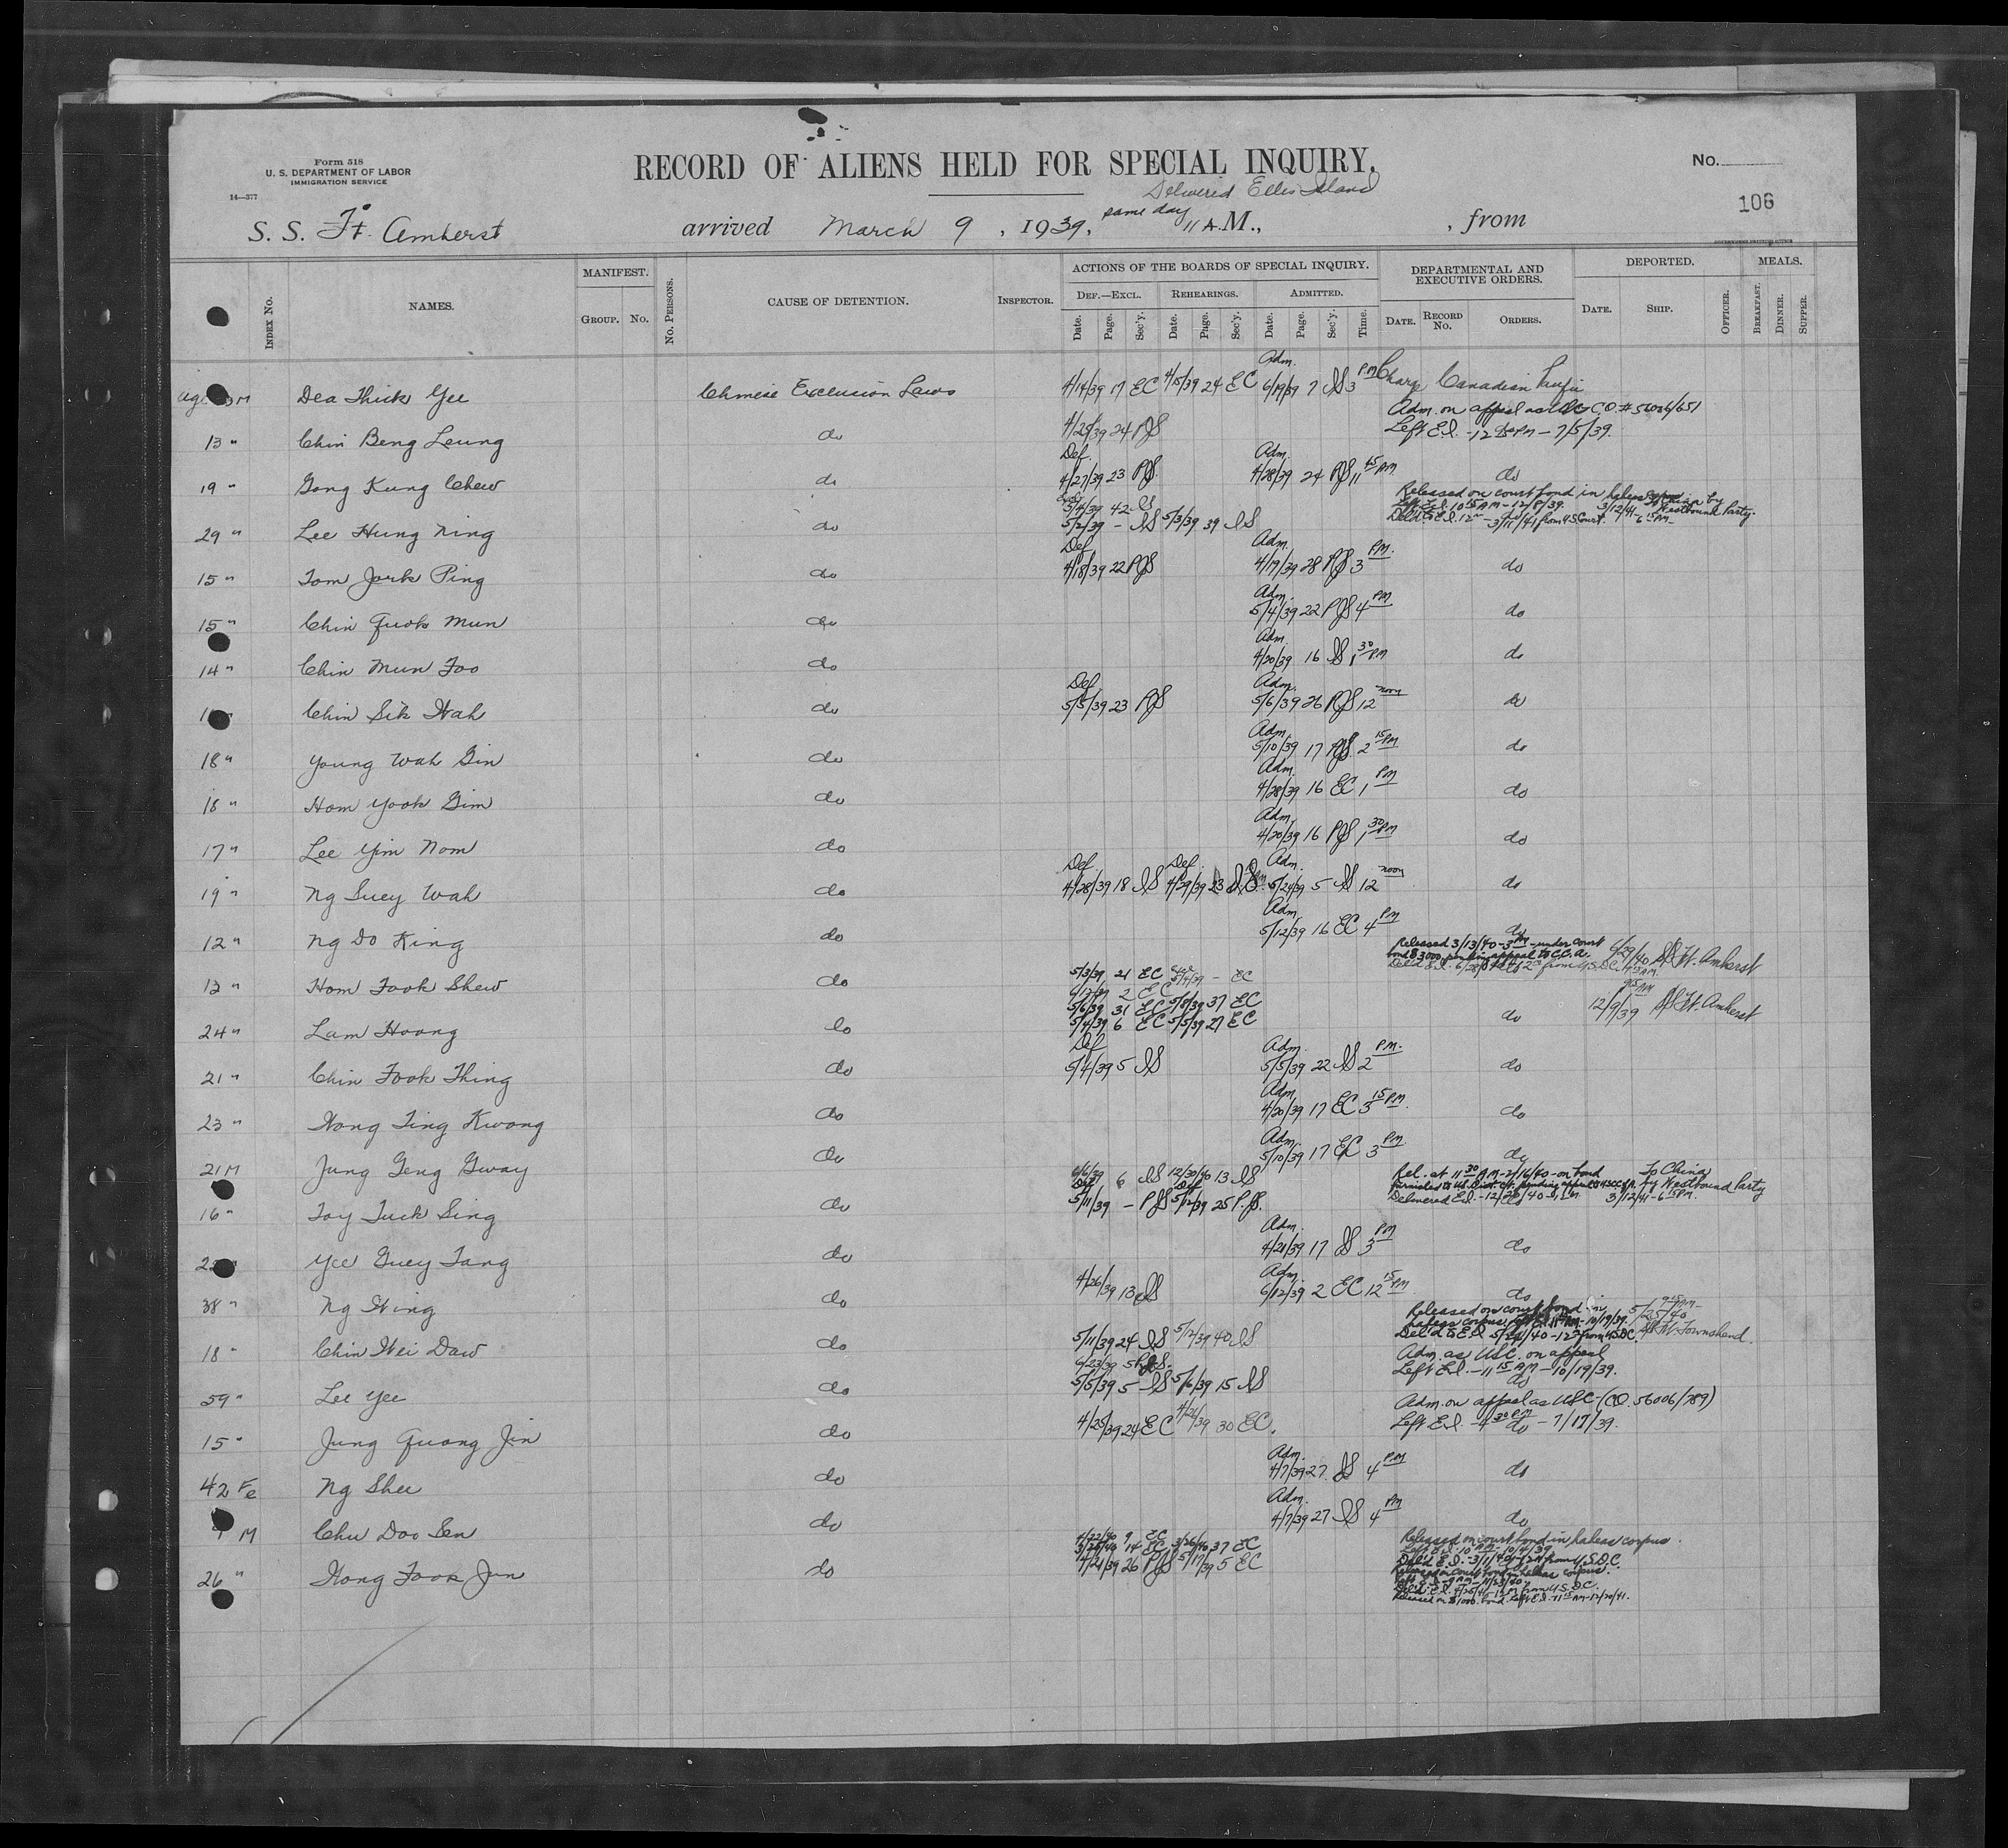 Form 518
U. S. DEPARTMENT OF LABOR
IMMIGRATION SERVICE
14—377
RECORD OF ALIENS HELD FOR SPECIAL INQUIRY.
No.
106
Delivered Ellis Island
same day
S. S. Ft. Amherst arrived March 9, 1939, 11 A.M., , from
GOVERNMENT PRINTING OFFICE
INDEX NO. NAMES. MANIFEST. GROUP. NO. NO. PERSONS. CAUSE OF DETENTION. INSPECTOR. ACTIONS OF THE BOARDS OF SPECIAL INQUIRY. DEPARTMENTAL AND EXECUTIVE ORDERS. DEPORTED. MEALS.
DEF.—EXCL. REHEARINGS. ADMITTED.
Date. Page. Sec'y. Date. Page. Sec'y. Date. Page. Sec'y. Time. DATE. RECORD NO. ORDERS. DATE. SHIP. OFFICER. BREAKFAST. DINNER. SUPPER.
Adm.
M Dea Thick Yee Chinese Exclusion Laws 4/14/39 17 EC 4/15/39 24 EC 6/19/39 7 IS 3 PM Charge Canadian Pacific
Adm. on appeal as USC CO # 56006/651
13 " Chin Beng Leung do 4/25/39 24 PJS Left E.I. - 12 PM - 7/5/39.
Def. Adm.
19 " Gong Kung Chew do 4/27/39 23 PJS. 4/28/39 24 PJS 11 45 AM do
Released on court bond in habeas corpus To China by
5/4/39 42 IS Left E.I. 10 15 AM - 12/8/39. 3/12/41 - 6 15 PM - Westbound Party.
29 " Lee Hung Ning do 5/2/39 - IS 5/3/39 39 IS Deld to E.I. 12 - 3/11/41 from U.S. Court.
Def. Adm.
15 " Tom Jork Ping do 4/18/39 22 PJS 4/19/39 28 PJS 3 PM. do
Adm.
15 " Chin Quok Mun do 5/4/39 22 PJS 4 PM do
Adm.
14 " Chin Mun Foo do 4/20/39 16 IS 1 30 PM do
Def. Adm.
Chin Sik Wah do 5/5/39 23 PJS 5/6/39 26 PJS 12 noon do
Adm.
18 " Young Wah Gin do 5/10/39 17 PJS. 2 15 PM do
Adm.
18 " Hom Yook Gim do 4/28/39 16 EC 1 PM do
Adm.
17 " Lee Yim Nom do 4/20/39 16 PJS 1 30 PM do
Def. Def. Adm.
19 " Ng Suey Wah do 4/28/39 18 IS 4/29/39 23 IS 5/24/39 5 IS 12 noon do
Adm.
12 " Ng Do King do 5/12/39 16 EC 4 PM do
Released 3/13/40 - 3 PM - under court
bond $3000 pending appeal to C.C.A. 6/29/40 SS Ft. Amherst
13 " Hom Fook Shew do 5/3/39 21 EC - EC
6/12/39 2 EC
5/6/39 31 EC 5/8/39 37 EC 12/9/39 9 15 AM SS Ft. Amherst
24 " Lam Hoong do 5/4/39 6 EC 5/5/39 27 EC do
Def Adm.
21 " Chin Fook Thing do 5/4/39 5 IS 5/5/39 22 IS 2 PM. do
Adm.
23 " Wong Ting Kwong do 4/20/39 17 EC 3 15 PM. do
Adm.
21 M Jung Geng Gway do 5/10/39 17 EC 3 PM. do
6/6/39 6 IS 12/30/40 13 IS Rel. at 11 30 AM - 2/16/40 - on bond To China
Delivered E.I. - 12/ /40 3/12/41 - 6 15 PM. by Westbound Party
16 " Toy Tuck Sing do 5/11/39 - PJS 5/12/39 25 P.JS.
Adm.
Yee Guey Tang do 4/21/39 17 IS 3 PM do
Adm.
38 " Ng Wing do 4/26/39 13 IS 6/12/39 2 EC 12 15 PM do
Released on court bond in
habeas corpus 10/19/39. 5/25/40 SS Ft. Townshend.
18 " Chin Wei Daw do 5/11/39 24 IS 5/12/39 40 IS Del'd to E.I. 5/24/40 - 12 from U.S.D.C.
6/23/39 5 PJS. Adm. as USC. on appeal
59 " Lee Yee do 5/5/39 5 - IS 5/6/39 15 IS Left E.I. - 11 15 AM - 10/19/39.
Adm. on appeal as USC - (CO. 56006/789)
15 " Jung Quong Jin do 4/25/39 24 EC 4/26/39 30 EC. Left E.I. - 4 30 PM - 7/17/39.
Adm.
42 Fe Ng Shee do 4/7/39 27 IS 4 PM do
Adm.
M Chu Doo Sen do 4/7/39 27 IS 4 PM do
4/22/40 9 EC Released on court bond in habeas corpus.
3/25/40 14 EC. 3/26/40 37 EC Left E.I. 10 AM - 10/4/39
26 " Wong Foon Jun do 4/21/39 26 PJS 5/17/39 5 EC Deld E.I. - 3/1/40 from U.S.D.C.
Released on court bond in habeas corpus.
Released on $1000. bond. Left E.I. - 11 15 AM - 12/20/41.